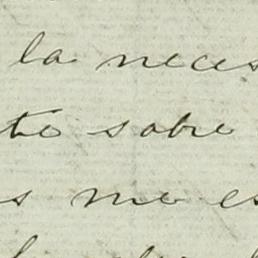 la neces
te sobre
s me es